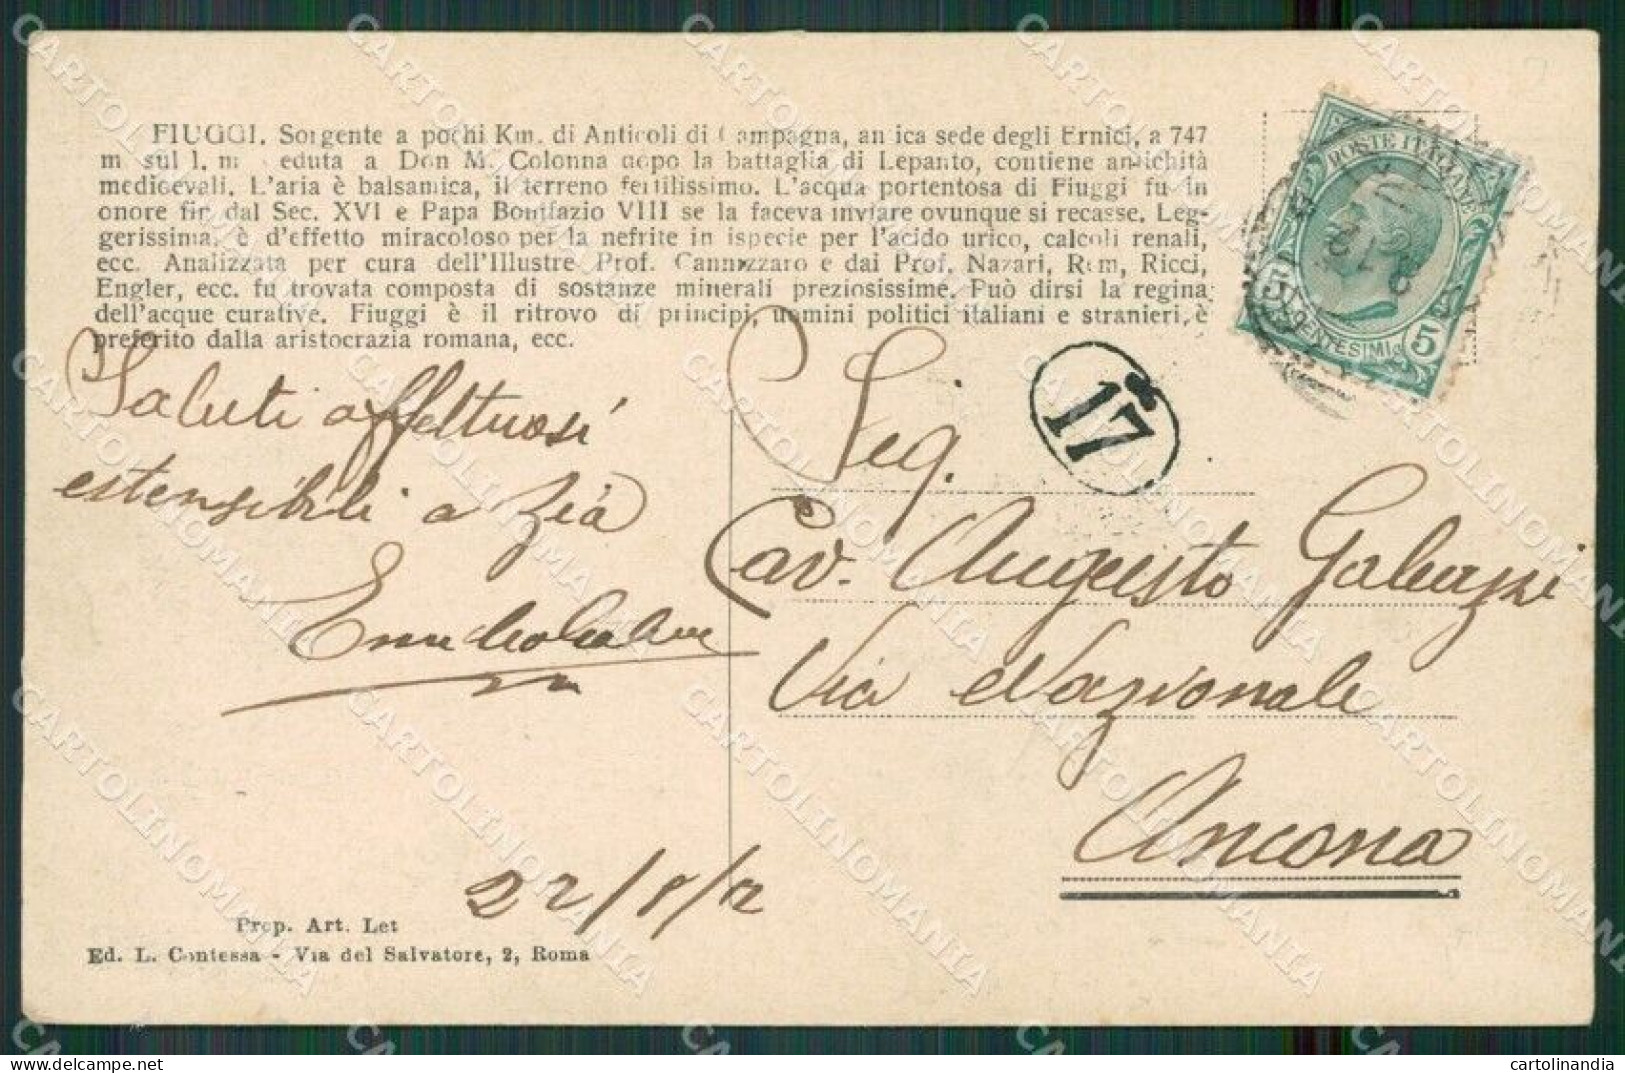 FIUGGI. Sorgente a pochi Km. di Anticoli di Campagna, an ica sede degli Ernici, a 747
m sul l. m eduta a Don M. Colonna dopo la battaglia di Lepanto, contiene antichità
medioevali. L'aria è balsamica, il terreno fertilissimo. L'acqua portentosa di Fiuggi fu in
onore fin dal Sec. XVI e Papa Bonifazio VIII se la faceva inviare ovunque si recasse. Leg-
gerissima, è d'effetto miracoloso per la nefrite in ispecie per l'acido urico, calcoli renali,
ecc. Analizzata per cura dell'Illustre Prof. Cannizzaro e dai Prof. Nazari, Rem, Ricci,
Engler, ecc. fu trovata composta di sostanze minerali preziosissime. Può dirsi la regina
dell'acque curative. Fiuggi è il ritrovo di principi, uomini politici italiani e stranieri, è
preferito dalla aristocrazia romana, ecc.
POSTE ITALIANE
5 CENTESIMI 5
17
Saluti affettuosi
estensibili a zia
22/8/12
Sig.
Cav. Augusto Galeazzi
Via Nazionale
Ancona
Prop. Art. Let
Ed. L. Contessa - Via del Salvatore, 2, Roma
CARTOLINOMANIA
cartolinandia